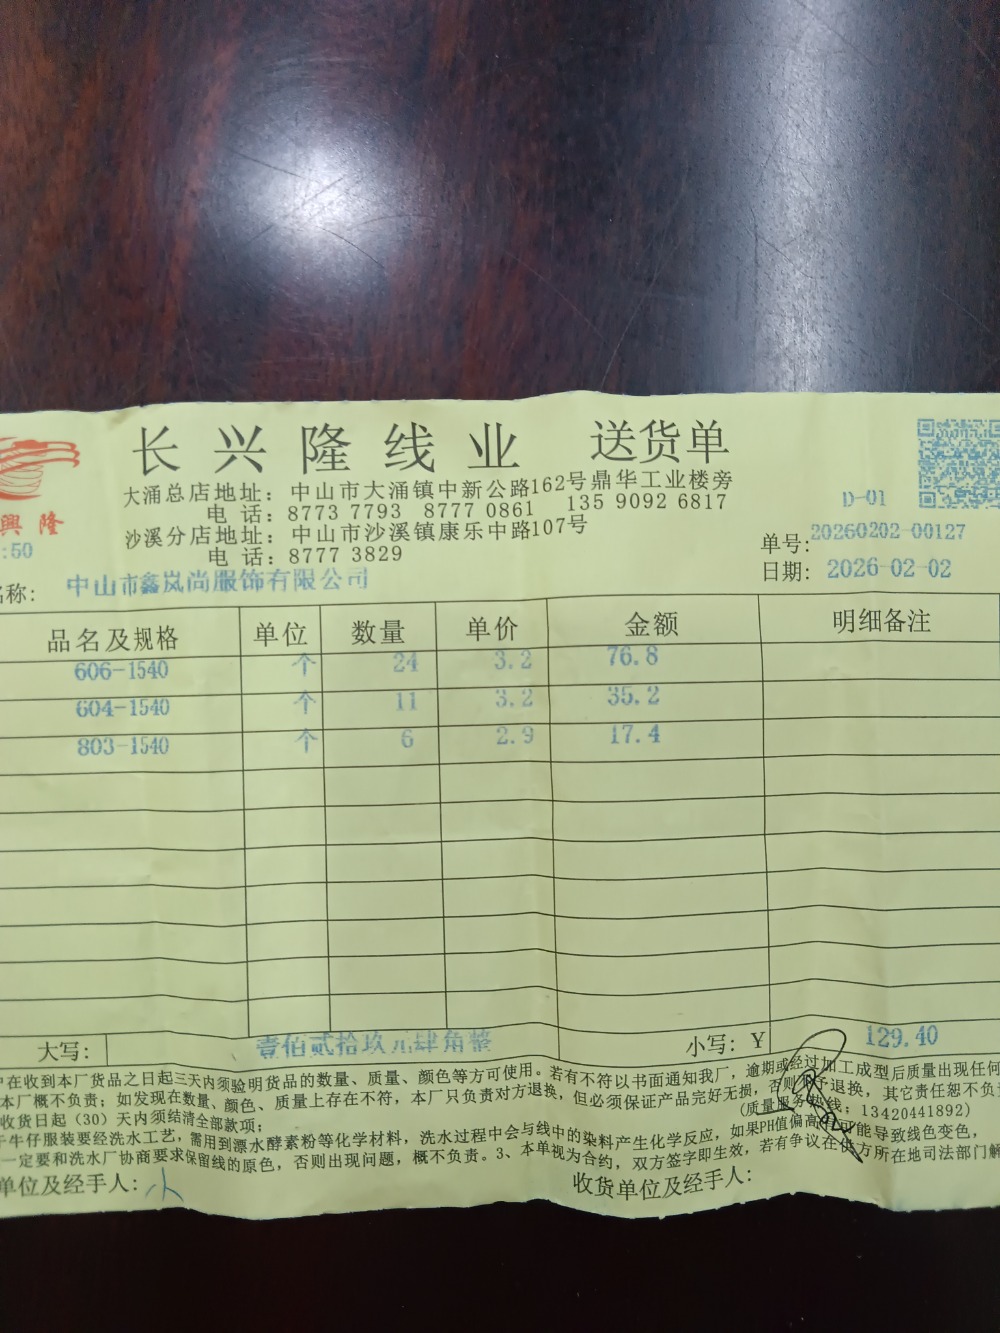 长兴隆线业 送货单
大涌总店地址：中山市大涌镇中新公路162号鼎华工业楼旁
电 话：8773 7793 8777 0861 135 9092 6817
沙溪分店地址：中山市沙溪镇康乐中路107号
电 话：8777 3829
興隆
:50
D-01
单号:20260202-00127
日期: 2026-02-02
名称: 中山市鑫岚尚服饰有限公司
品名及规格 单位 数量 单价 金额 明细备注
606-1540 个 24 3.2 76.8
604-1540 个 11 3.2 35.2
803-1540 个 6 2.9 17.4
大写: 壹佰贰拾玖元肆角整 小写: ¥ 129.40
在收到本厂货品之日起三天内须验明货品的数量、质量、颜色等方可使用。若有不符以书面通知我厂，逾期或经过加工成型后质量出现任何
本厂概不负责；如发现在数量、颜色、质量上存在不符，本厂只负责对方退换，但必须保证产品完好无损，否则 予退换，其它责任恕不负责
收货日起（30）天内须结清全部款项； (质量服务热线：13420441892)
牛仔服装要经洗水工艺，需用到漂水酵素粉等化学材料，洗水过程中会与线中的染料产生化学反应，如果PH值偏高 可能导致线色变色，
一定要和洗水厂协商要求保留线的原色，否则出现问题，概不负责。3、本单视为合约，双方签字即生效，若有争议在 方所在地司法部门解
单位及经手人: 收货单位及经手人: